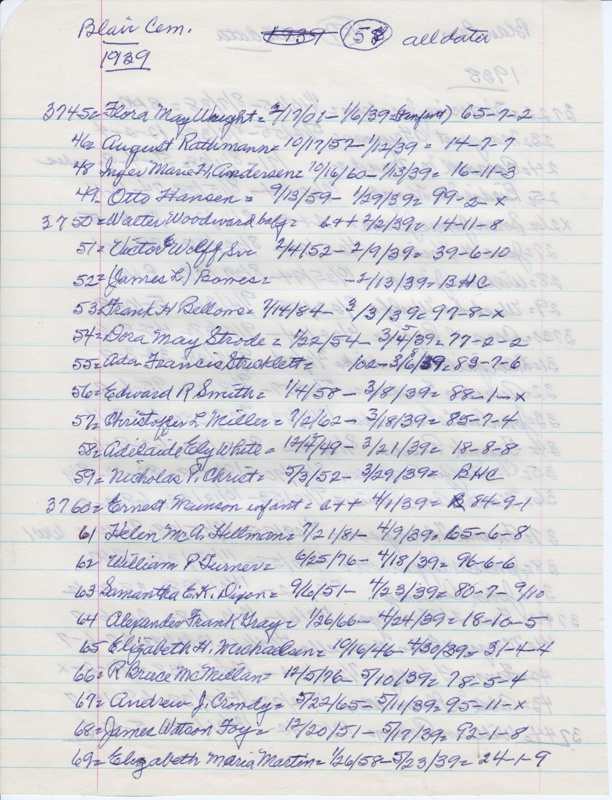 Blair Cem. 1939 158 all data
1939
3745= Flora May Wright= 2/17/01 - 1/6/39 (infant) 65-7-2
46= August Rathmann= 10/17/57 - 1/12/39 = 14-7-7
48 Inger Marie H. Andersen= 10/16/60 - 1/13/39 = 16-11-3
49- Otto Hansen = 9/13/59 - 1/29/39 = 99-2-x
3750= Walter Woodward baby= b++ 2/2/39= 14-11-8
51= Victor E Wolff, Sr= 2/4/52 - 2/9/39= 39-6-10
52= (James L) Bones= - 2/13/39= BHC
53= Frank H Bellows= 7/14/84 - 3/3/39= 97-8-x
54= Dora May Strode = 1/22/54 - 3/4/39= 77-2-2
55= Ada Francis Stricklett= /02 - 3/6/39= 83-7-6
56= Edward R Smith= 1/4/58 - 3/8/39= 88-1-x
57= Christoffer L Miller= 7/2/62 - 3/18/39= 85-7-4
58= Adelaide Ely White = 12/4/49 - 3/21/39= 18-8-8
59= Nicholas P. Christ = 5/3/52 - 3/29/39= BHC
3760= Ernest Munson infant = b++ 4/1/39= 84-9-1
61 Helen McA. Hillman= 7/21/81 - 4/9/39= 65-6-8
62= William P Turner= 6/25/76 - 4/18/39= 96-6-6
63 Samantha E.K. Dixon= 9/6/51 - 4/23/39= 80-7-9/10
64 Alexander Frank Gray= 1/26/66 - 4/24/39= 18-10-5
65 Elizabeth H. Michaelsen= 10/16/46 - 4/30/39= 31-4-4
66= R Bruce McMillan= 12/5/76 - 5/10/39= 78-5-4
67= Andrew J. Crondy= 5/22/65 - 5/11/39= 95-11-x
68= James Watson Foy= 12/20/51 - 5/17/39= 92-1-8
69= Elizabeth Maria Martin= 1/26/58 - 5/23/39= 24-1-9